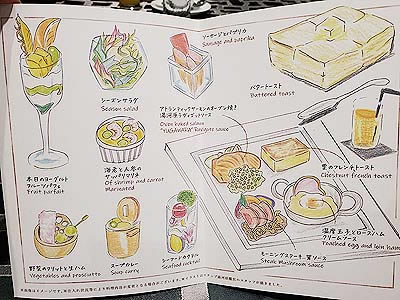 ソーセージとパプリカ
Sausage and paprika
バタートースト
Buttered toast
シーズンサラダ
Season salad
アトランティックサーモンのオーブン焼き
湯河原ラヴィゴットソース
Oven baked salmon
"YUGAWARA" Ravigote sauce
本日のヨーグルト
フルーツパフェ
Fruit parfait
海老と人参の
マリネ
Of shrimp and carrot
Marinated
栗のフレンチトースト
Chestnut french toast
野菜のグリッと生ハム
Vegetables and prosciutto
スープカレー
Soup curry
シーフードカクテル
Seafood cocktail
モーニングステーキ 茸ソース
Steak Mushroom Sauce
温度玉子とロースハム
クリームソース
Poached egg and loin ham